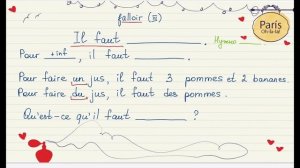 falloir (II)
Paris
Oh-là-là!
Il faut ________.
Pour +inf, il faut ________.
Pour faire un jus, il faut 3 pommes et 2 bananes.
Pour faire du jus, il faut des pommes.
Qu'est-ce qu'il faut ________?